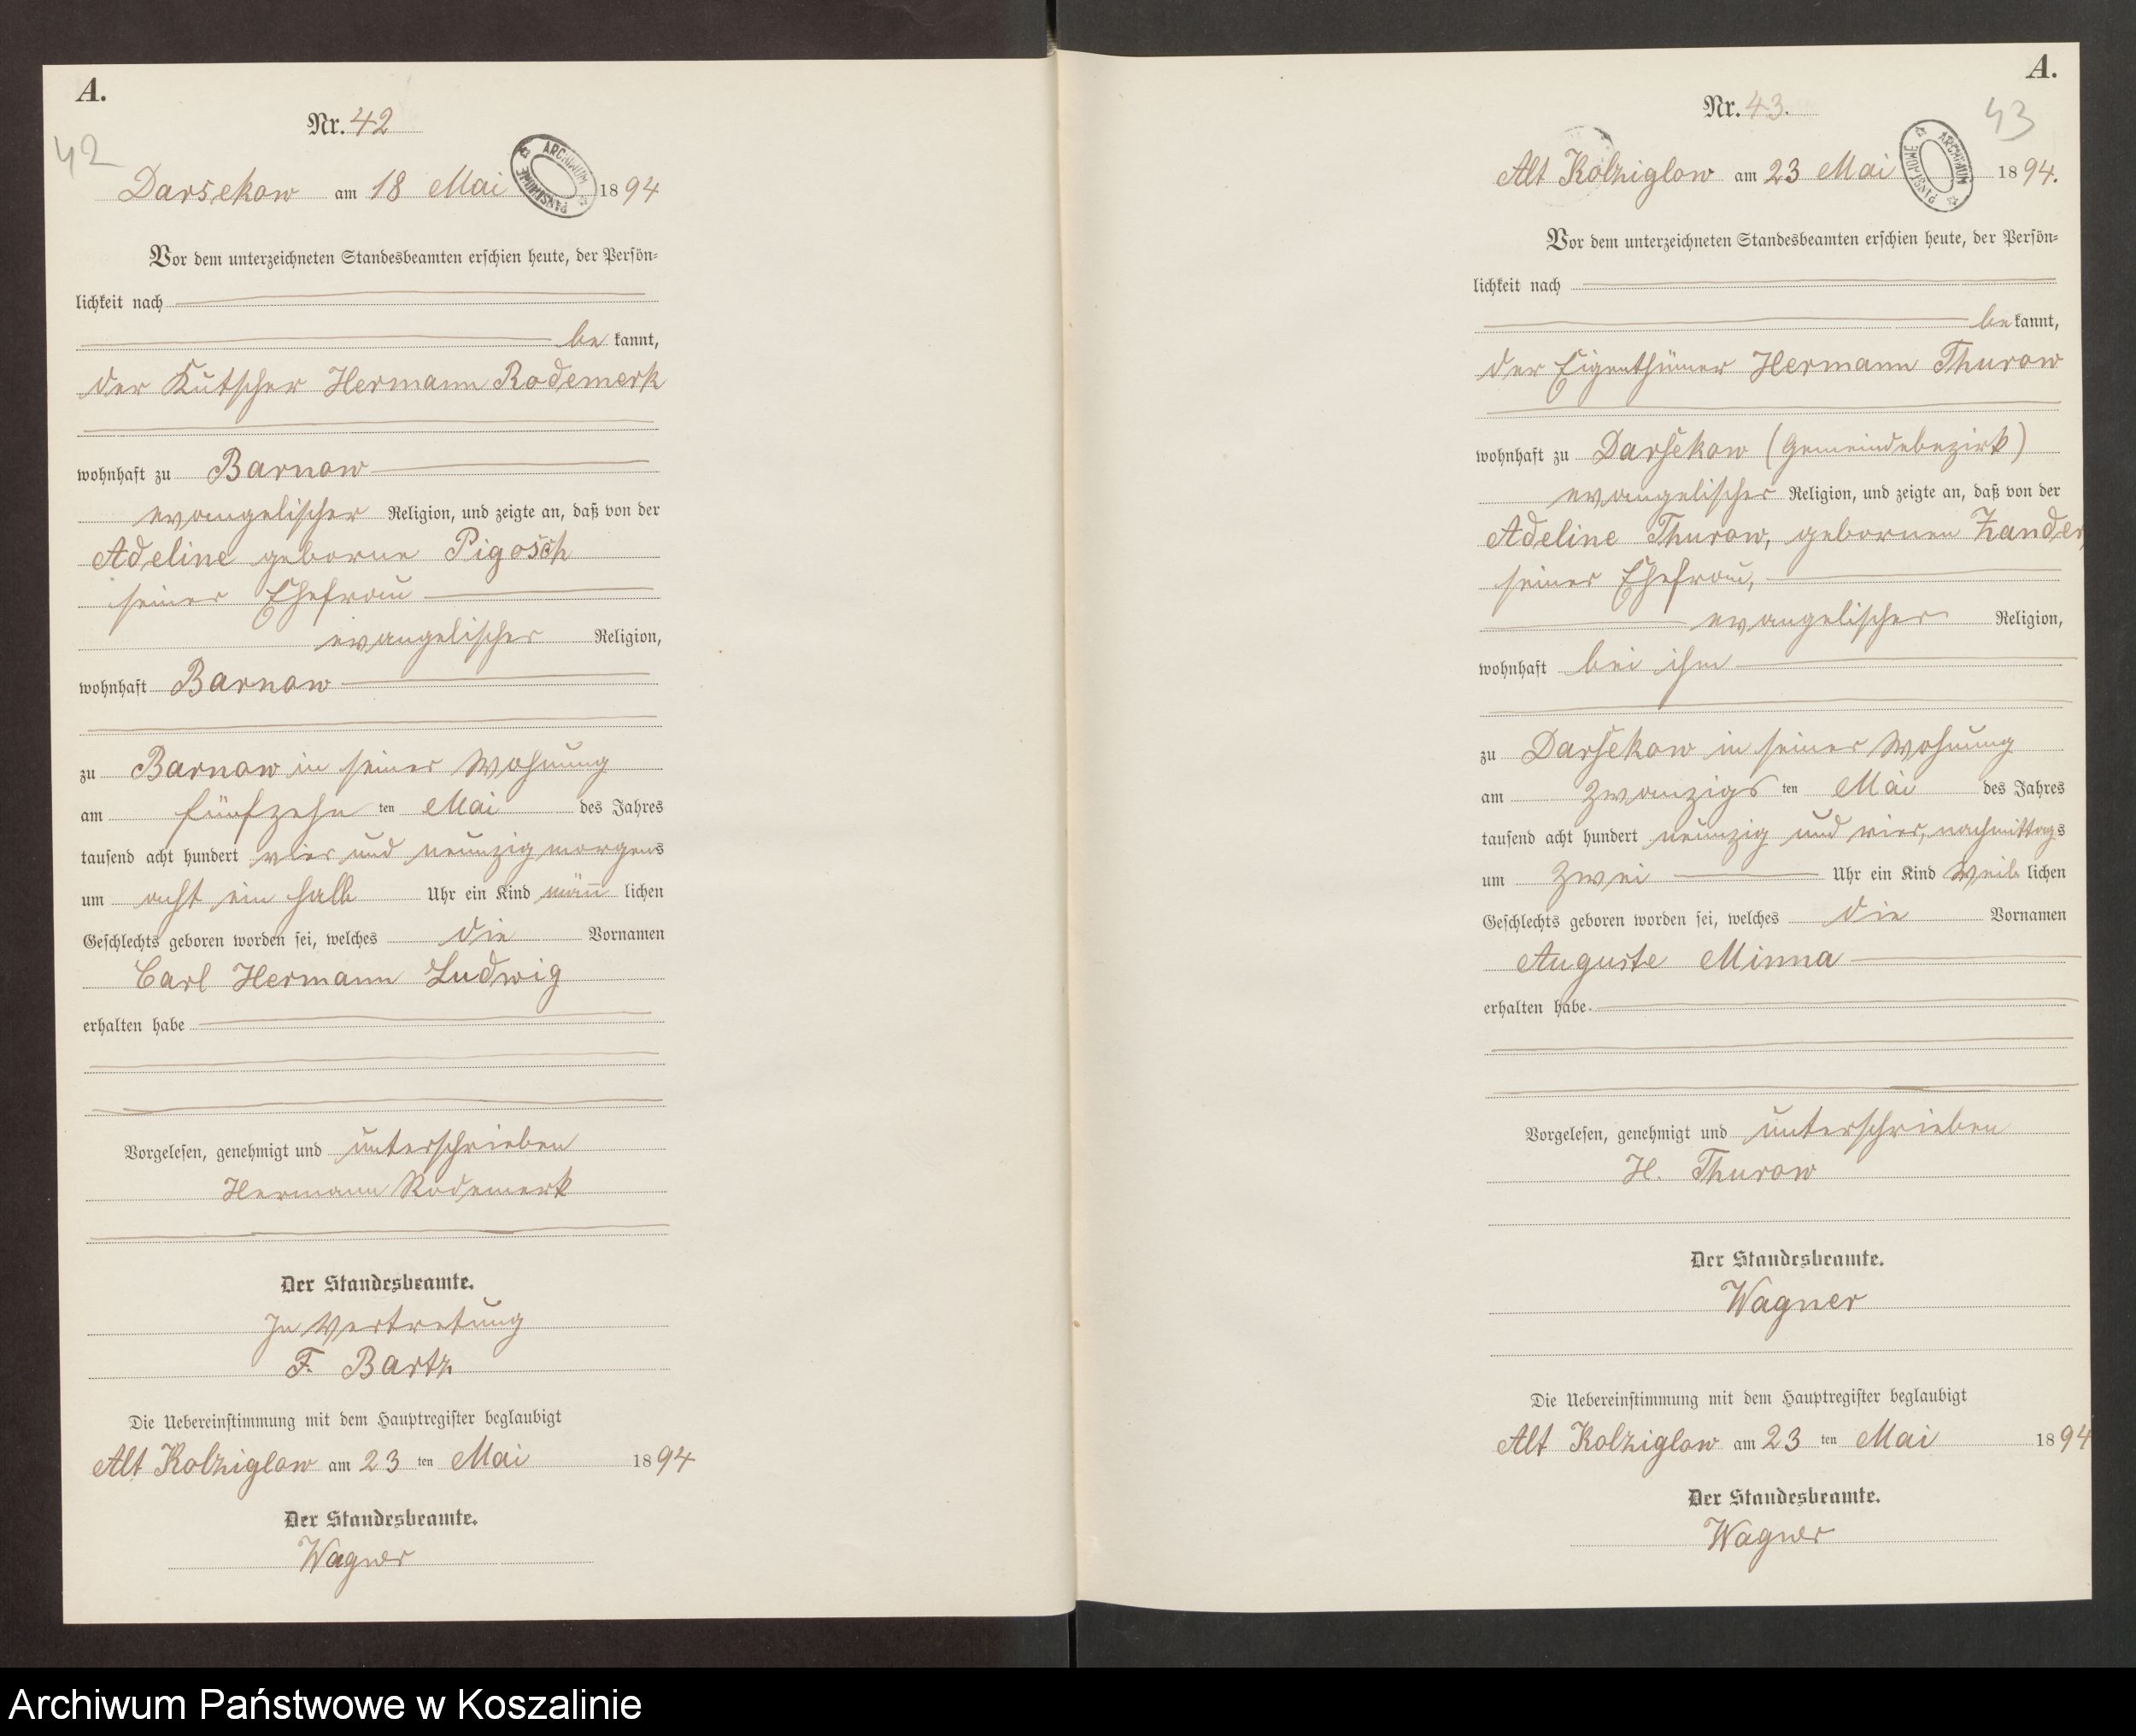 A.
Nr. 42
42
Darsekow am 18 Mai 1894
ARCHIWUM PAŃSTWOWE
Vor dem unterzeichneten Standesbeamten erschien heute, der Persön-
lichkeit nach
be kannt,
der Kutscher Hermann Rodemerk
wohnhaft zu Barnow
evangelischer Religion, und zeigte an, daß von der
Adeline geborne Pigosch
seiner Ehefrau
evangelischer Religion,
wohnhaft Barnow
zu Barnow in seiner Wohnung
am fünfzehn ten Mai des Jahres
tausend acht hundert vier und neunzig morgens
um acht ein halb Uhr ein Kind männ lichen
Geschlechts geboren worden sei, welches die Vornamen
Carl Hermann Ludwig
erhalten habe
Vorgelesen, genehmigt und unterschrieben
Hermann Rodemerk
Der Standesbeamte.
In Vertretung
F. Bartz
Die Uebereinstimmung mit dem Hauptregister beglaubigt
Alt Kolziglow am 23 ten Mai 1894
Der Standesbeamte.
Wagner
A.
Nr. 43.
43
Alt Kolziglow am 23 Mai 1894.
ARCHIWUM PAŃSTWOWE
Vor dem unterzeichneten Standesbeamten erschien heute, der Persön-
lichkeit nach
be kannt,
der Eigenthümer Hermann Thurow
wohnhaft zu Darsekow (Gemeindebezirk)
evangelischer Religion, und zeigte an, daß von der
Adeline Thurow, gebornen Zander,
seiner Ehefrau,
evangelischer Religion,
wohnhaft bei ihm
zu Darsekow in seiner Wohnung
am zwanzigs ten Mai des Jahres
tausend acht hundert neunzig und vier, nachmittags
um zwei Uhr ein Kind weib lichen
Geschlechts geboren worden sei, welches die Vornamen
Auguste Minna
erhalten habe.
Vorgelesen, genehmigt und unterschrieben
H. Thurow
Der Standesbeamte.
Wagner
Die Uebereinstimmung mit dem Hauptregister beglaubigt
Alt Kolziglow am 23 ten Mai 1894
Der Standesbeamte.
Wagner
Archiwum Państwowe w Koszalinie